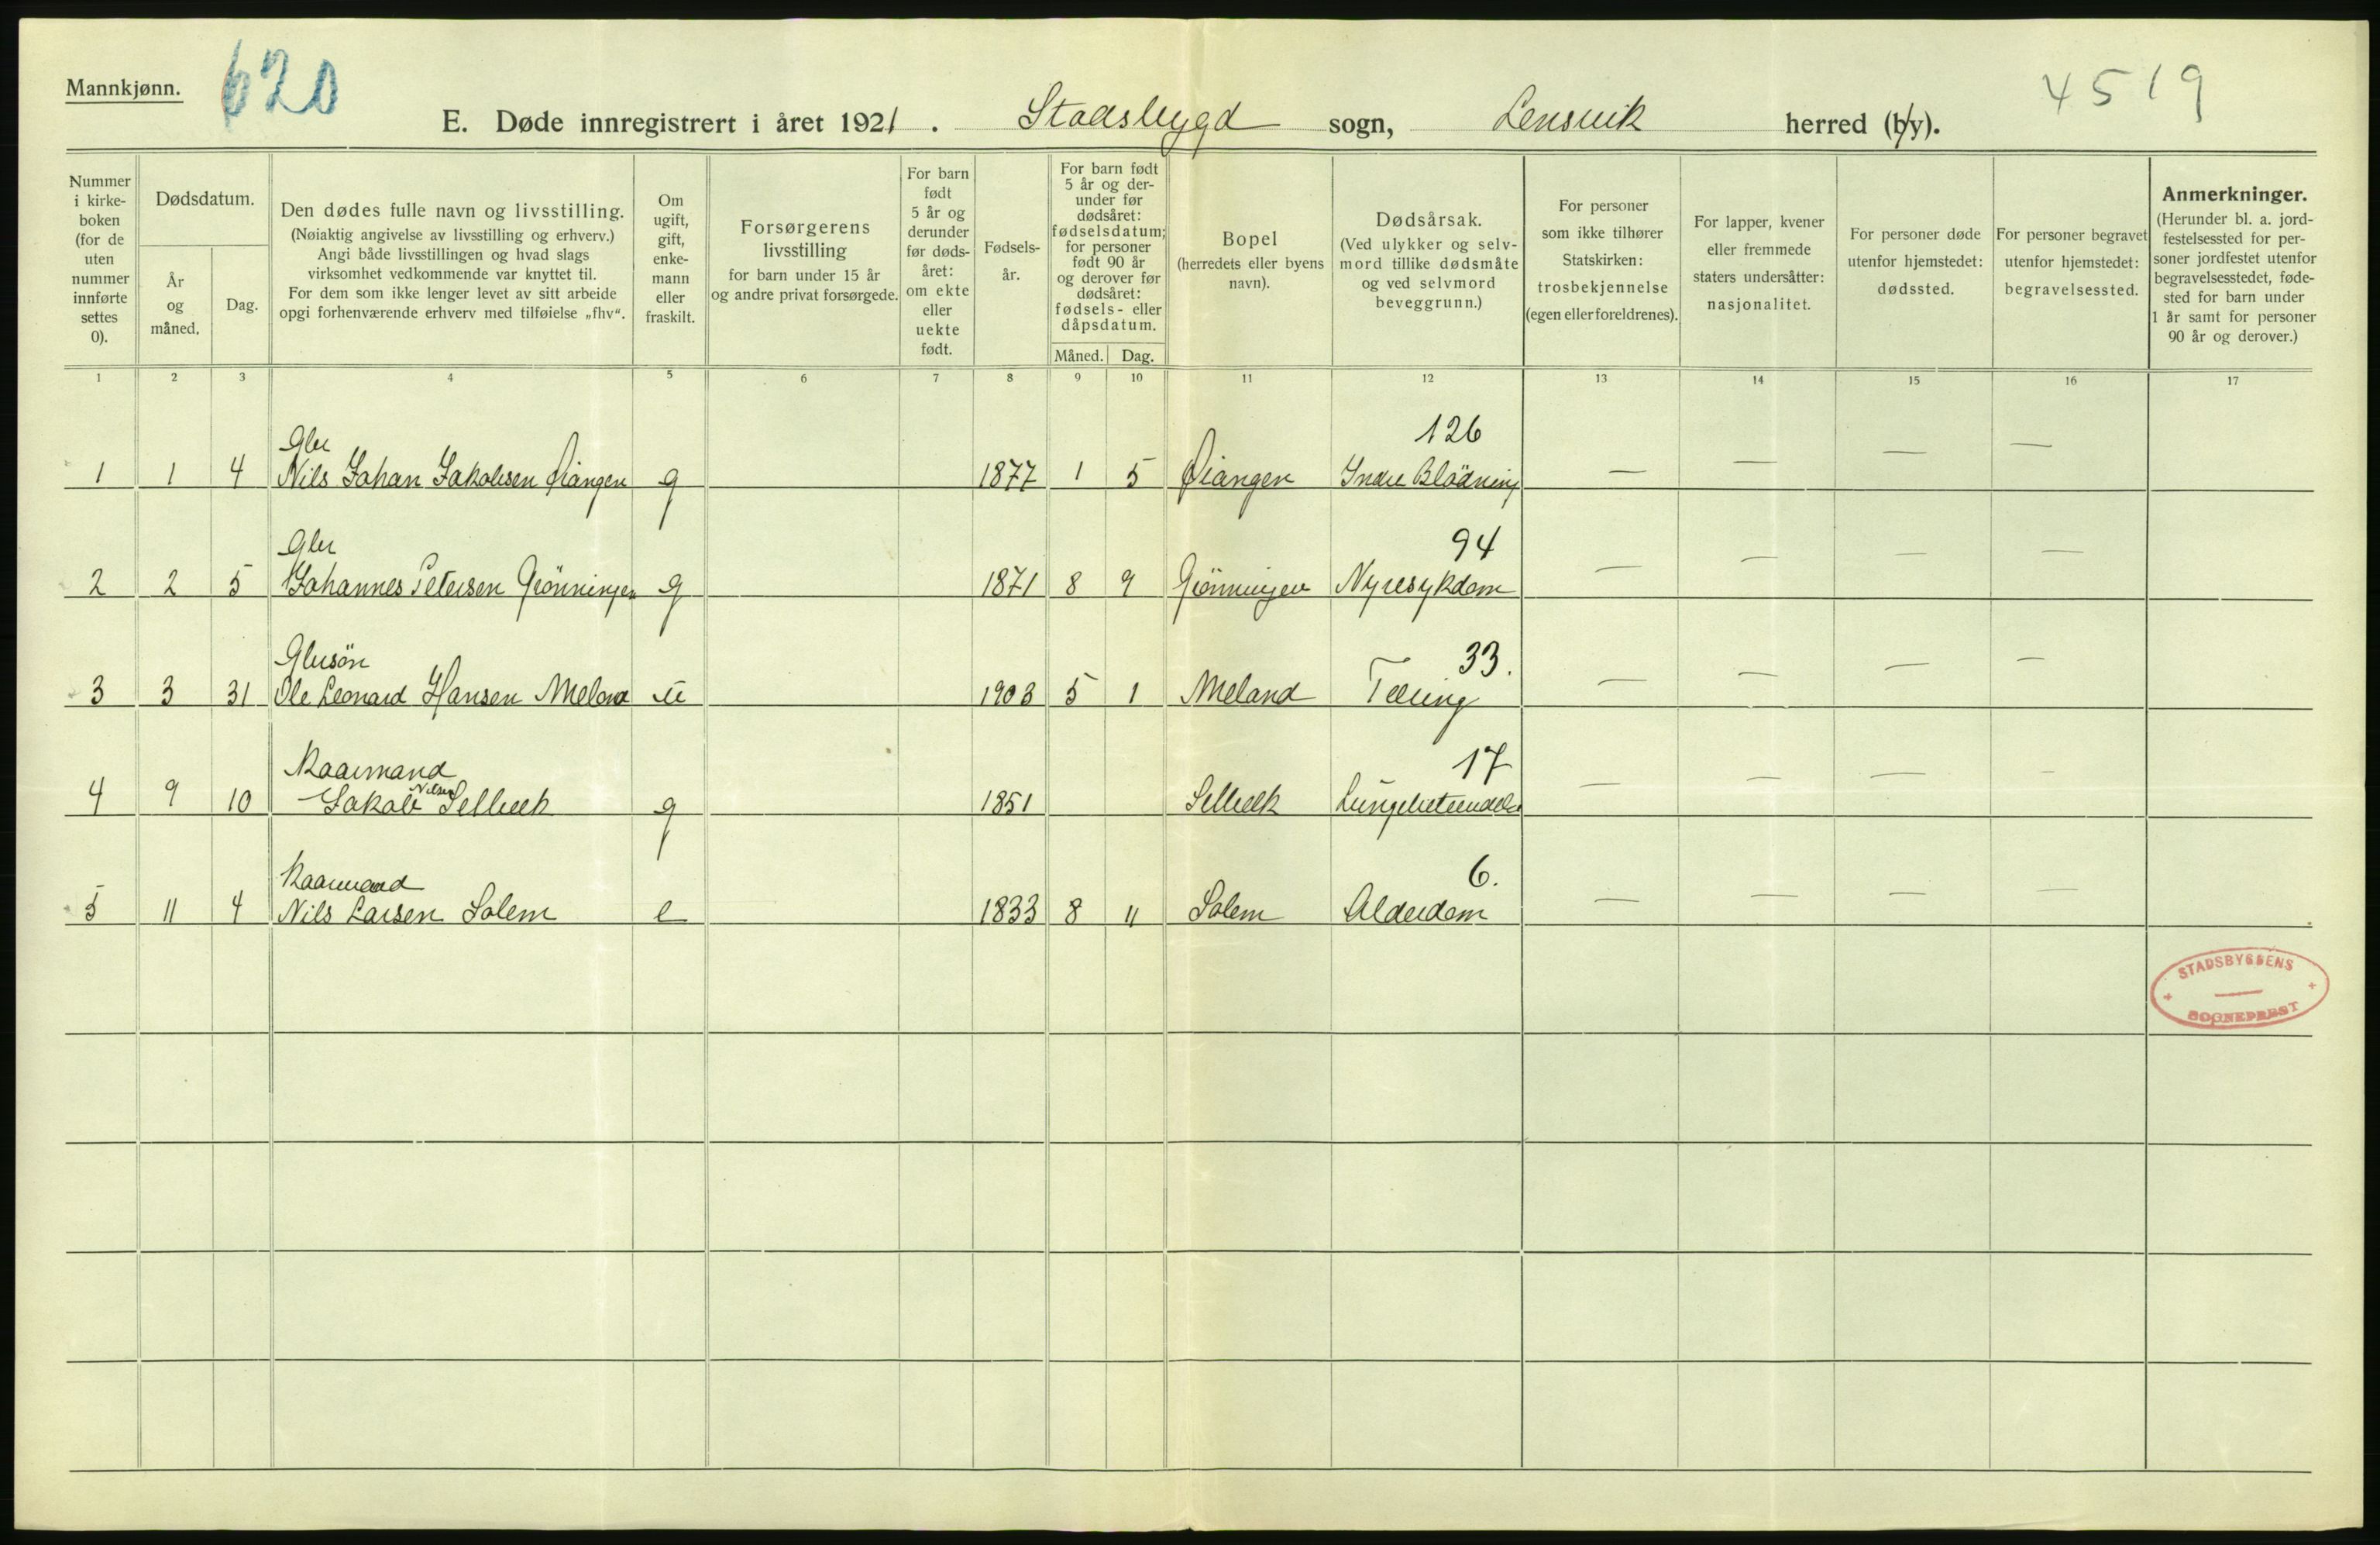 Mannkjønn.
620
4519
E. Døde innregistrert i året 1921. Stadsbygd sogn, Lensvik herred (by).
Nummer i kirkeboken (for de uten nummer innførte settes 0).
Dødsdatum.
År og måned.
Dag.
Den dødes fulle navn og livsstilling.
(Nøiaktig angivelse av livsstilling og erhverv.)
Angi både livsstillingen og hvad slags
virksomhet vedkommende var knyttet til.
For dem som ikke lenger levet av sitt arbeide
opgi forhenværende erhverv med tilføielse „fhv“.
Om ugift, gift, enkemann eller fraskilt.
Forsørgerens livsstilling
for barn under 15 år
og andre privat forsørgede.
For barn født 5 år og derunder før dødsåret: om ekte eller uekte født.
Fødselsår.
For barn født 5 år og derunder før dødsåret: fødselsdatum; for personer født 90 år og derover før dødsåret: fødsels- eller dåpsdatum.
Måned. Dag.
Bopel
(herredets eller byens navn).
Dødsårsak.
(Ved ulykker og selvmord tillike dødsmåte og ved selvmord beveggrunn.)
For personer som ikke tilhører Statskirken: trosbekjennelse (egen eller foreldrenes).
For lapper, kvener eller fremmede staters undersåtter: nasjonalitet.
For personer døde utenfor hjemstedet: dødssted.
For personer begravet utenfor hjemstedet: begravelsessted.
Anmerkninger.
(Herunder bl. a. jordfestelsessted for personer jordfestet utenfor begravelsesstedet, fødested for barn under 1 år samt for personer 90 år og derover.)
1 2 3 4 5 6 7 8 9 10 11 12 13 14 15 16 17
Gbr 126
1 1 4 Nils Johan Jakobsen Øiangen g 1877 1 5 Øiangen Indre Blödning — — — —
Gbr 94
2 2 5 Johannes Petersen Grönningen g 1871 8 9 Grönningen Nyresykdom — — — —
Gbrsön 33.
3 3 31 Ole Leonard Hansen Meland u 1903 5 1 Meland Tæring — — — —
Kaarmand 17
4 9 10 Jakob Nilsen Selbæk g 1851 Selbæk Lungebetændelse — — — —
Kaarmand 6.
5 11 4 Nils Larsen Solem e 1833 8 11 Solem Alderdom — — — —
STADSBYGDENS
SOGNEPREST